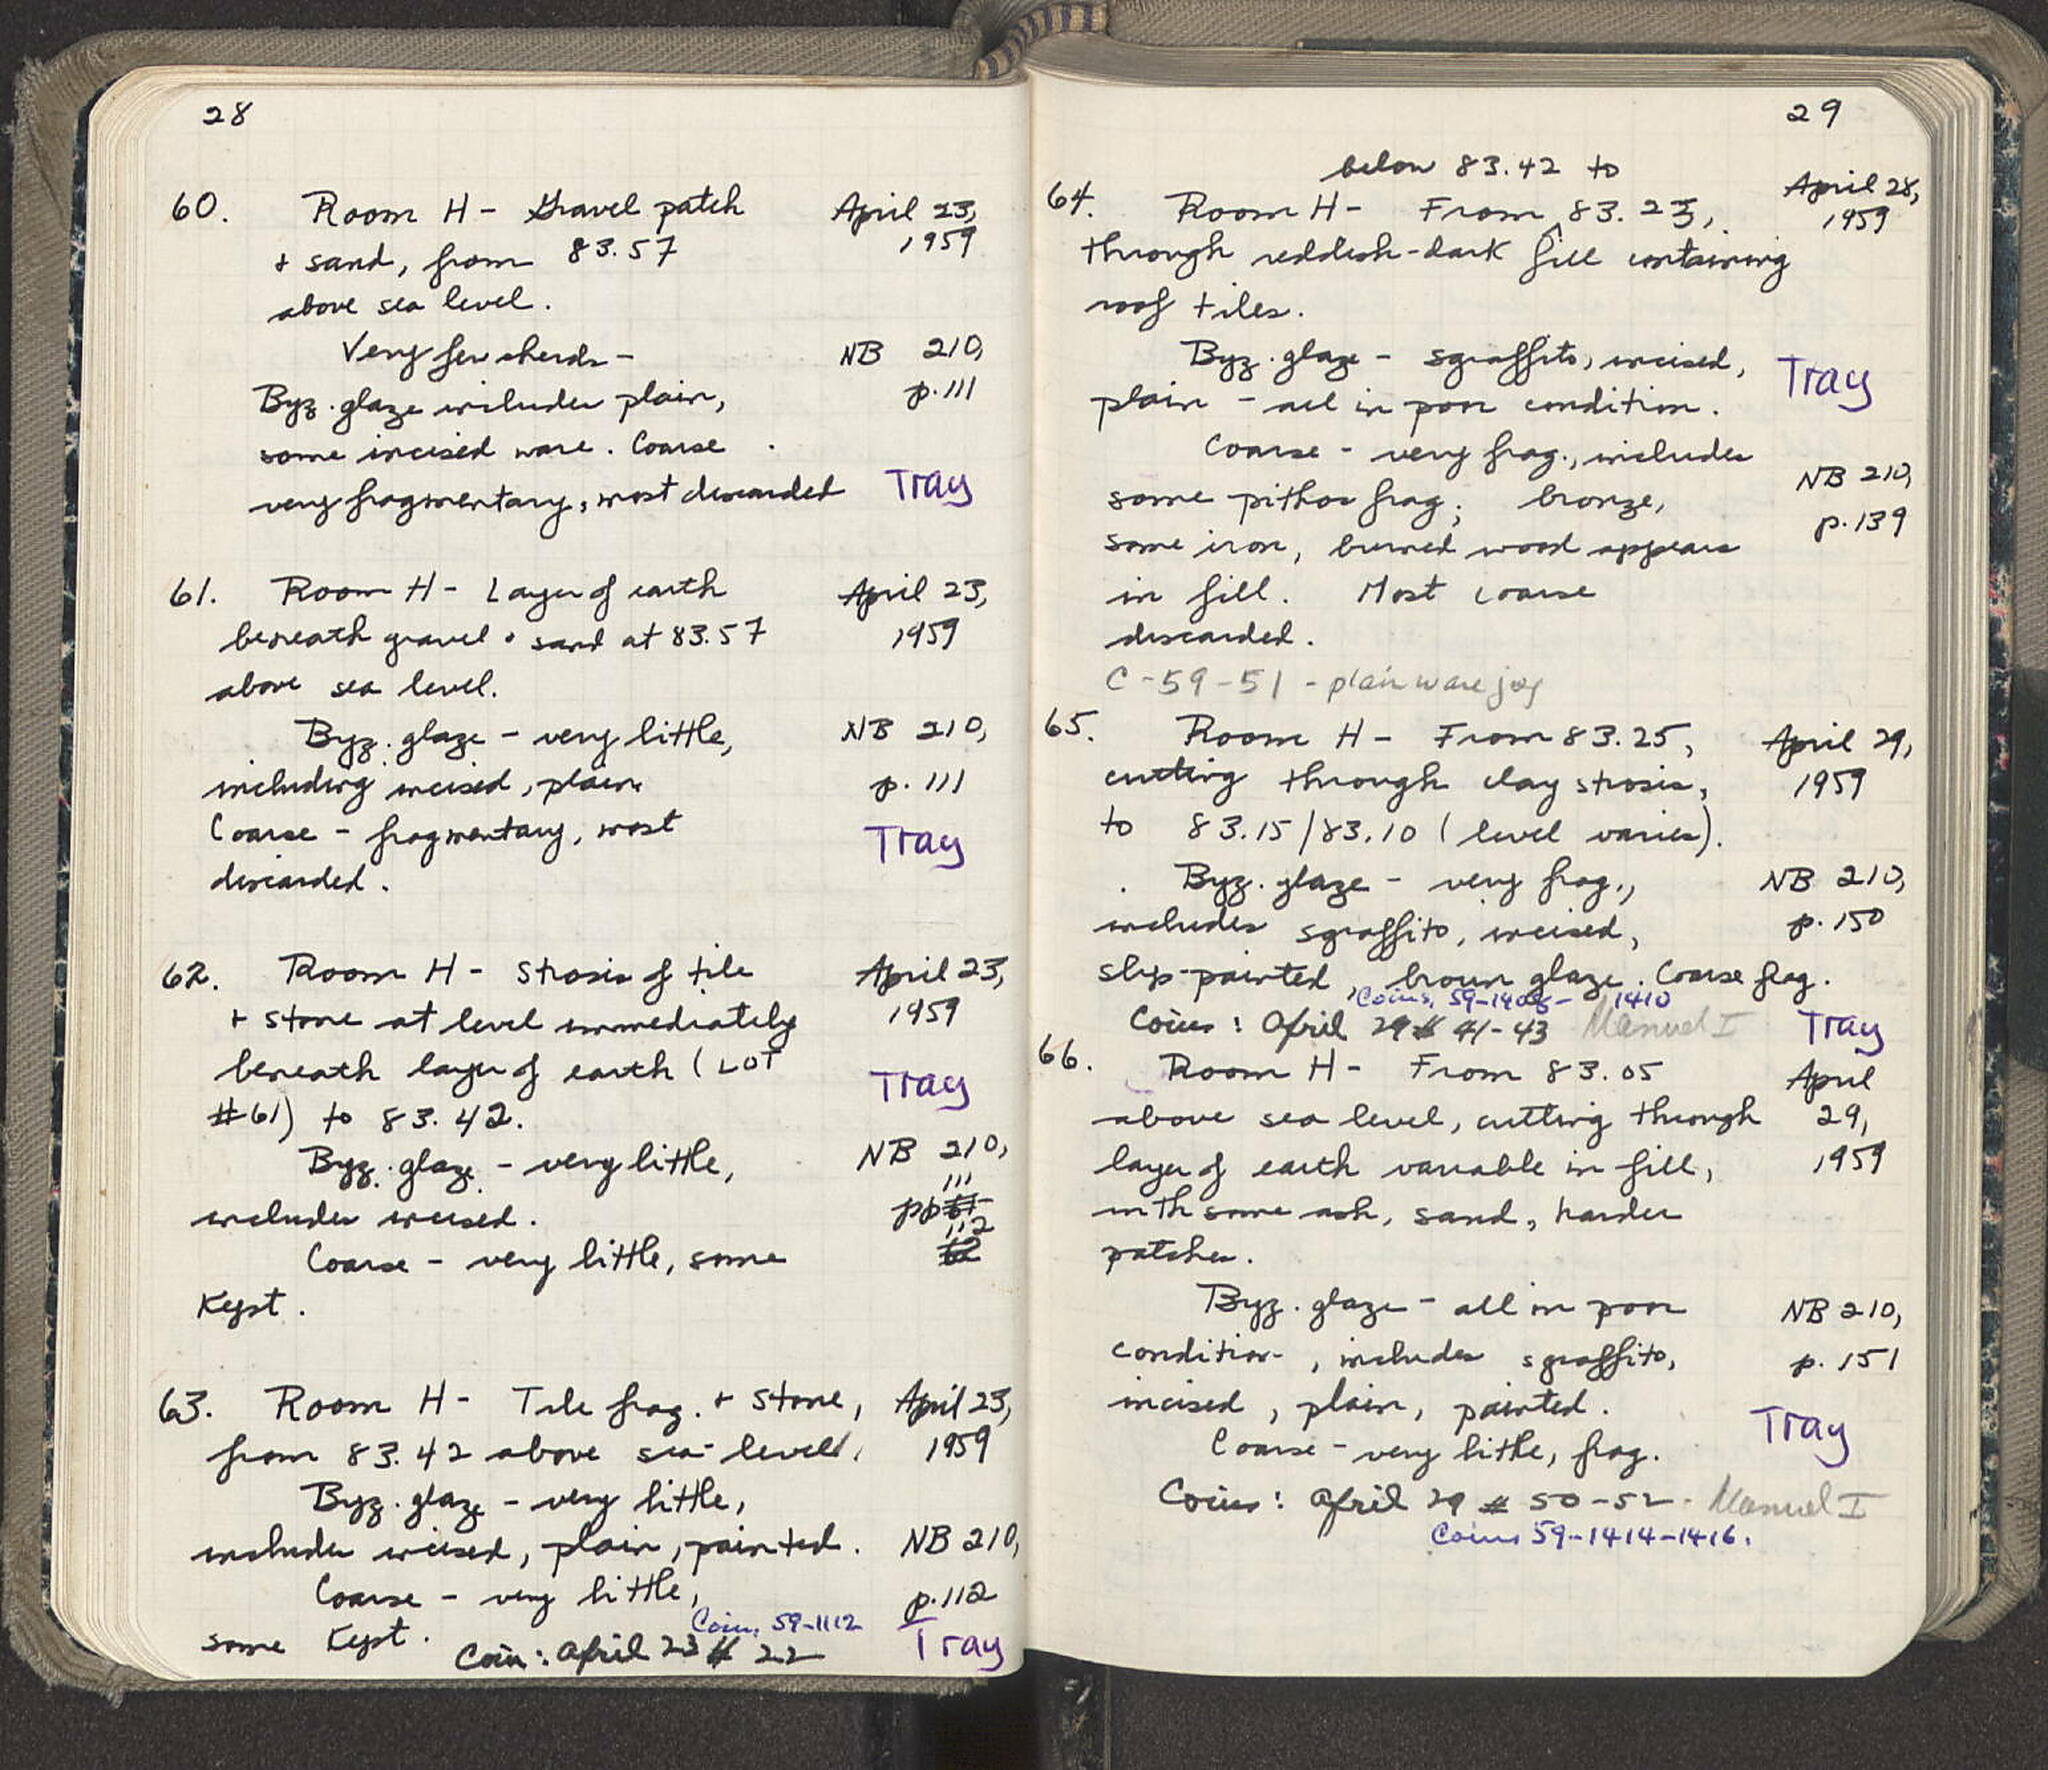 28
60. Room H - Gravel patch April 23,
+ sand, from 83.57 1959
above sea level.
Very few sherds - NB 210,
Byz. glaze includes plain, p. 111
some incised ware. Coarse
very fragmentary, most discarded Tray
61. Room H - Layer of earth April 23,
beneath gravel + sand at 83.57 1959
above sea level.
Byz. glaze - very little, NB 210,
including incised, plain. p. 111
Coarse - fragmentary, most Tray
discarded.
62. Room H - Strosis of tile April 23,
+ stone at level immediately 1959
beneath layer of earth (LOT Tray
#61) to 83.42.
Byz. glaze - very little, NB 210,
111
includes incised. pp 61
112
Coarse - very little, some 62
kept.
63. Room H - Tile frag. + stone, April 23,
from 83.42 above sea level. 1959
Byz. glaze - very little,
includes incised, plain, painted. NB 210,
Coarse - very little, p. 112
some kept. Coin, 59-1112 Tray
Coin: April 23 # 22
29
below 83.42 to
64. Room H - From 83.23, April 28,
1959
through reddish-dark fill containing
roof tiles.
Byz. glaze - sgraffito, incised, Tray
plain - all in poor condition.
Coarse - very frag., includes NB 210,
some pithos frag; bronze, p. 139
some iron, burned wood appears
in fill. Most coarse
discarded.
C-59-51 - plain ware jug
65. Room H - From 83.25, April 29,
cutting through clay strosis, 1959
to 83.15/83.10 (level varies).
Byz. glaze - very frag., NB 210,
includes sgraffito, incised, p. 150
slip-painted, brown glaze. Coarse frag.
Coins, 59-1408-1410
Coins: April 29 # 41-43 Manuel I Tray
66. Room H - From 83.05 April
above sea level, cutting through 29,
layer of earth variable in fill, 1959
with some ash, sand, harder
patches.
Byz. glaze - all in poor NB 210,
condition, includes sgraffito, p. 151
incised, plain, painted. Tray
Coarse - very little, frag.
Coins: April 29 # 50-52 - Manuel I
Coins 59-1414-1416.